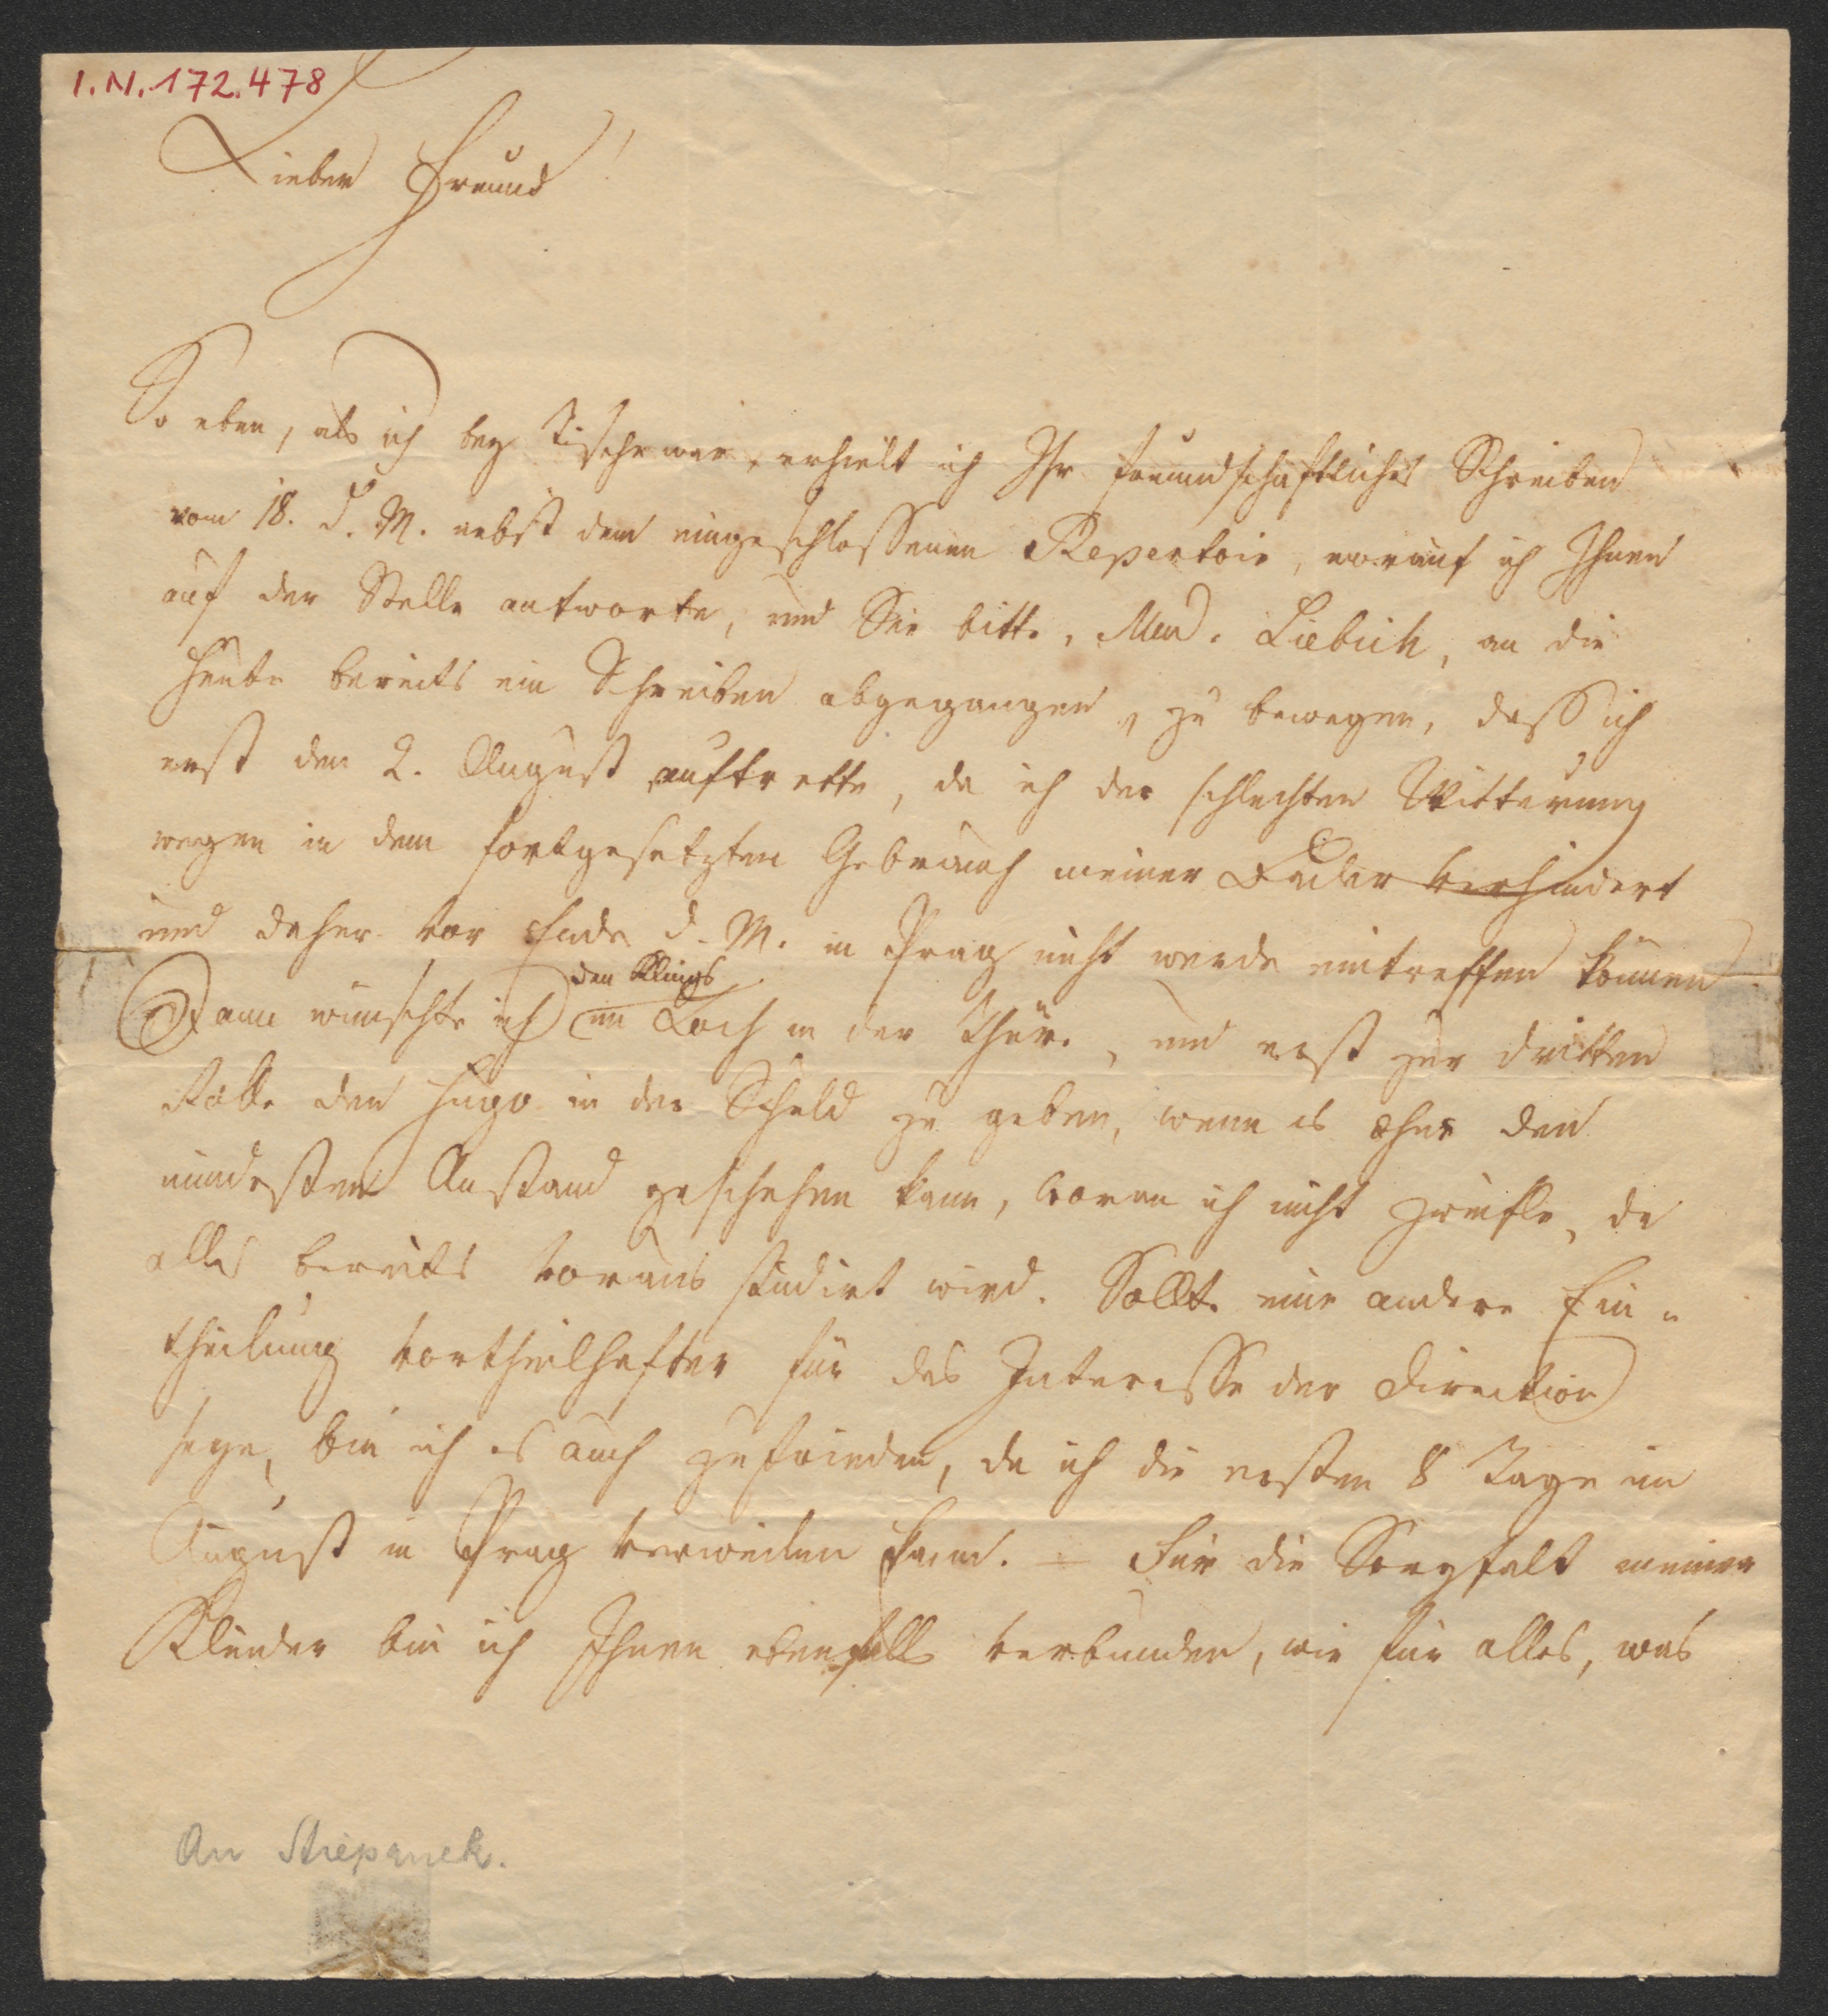 I.N. 172.478
Lieber Freund!
So eben, als ich bey Tische war, erhielt ich Ihr freundschaftliches Schreiben
vom 18. d. M. nebst dem eingeschlossenen Repertoir, worauf ich Ihnen
auf der Stelle antworte, und Sie bitte, Mad. Liebich, an die
heute bereits ein Schreiben abgegangen, zu bewegen, dass ich
erst den 2. August auftrette, da ich der schlechten Witterung
wegen in dem fortgesetzten Gebrauch meiner Bäder verhindert
und daher vor Ende d. M. in Prag nicht werde eintreffen können
Dann wünschte ich den Klings im Loch in der Thür, und erst zur dritten
Rolle den Hugo in der Schuld zu geben, wenn es ohne den
mindesten Anstand geschehen kann, woran ich nicht zweifle, da
alles bereits voraus studirt wird. Sollte eine andere Ein-
theilung vortheilhafter für das Interesse der Direction
seye, bin ich es auch zufrieden, da ich die ersten 8 Tage im
August in Prag verweilen kann. – Für die Sorgfalt meiner
Kleider bin ich Ihnen ebenfalls verbunden, wie für alles, was
An Stiepanek.